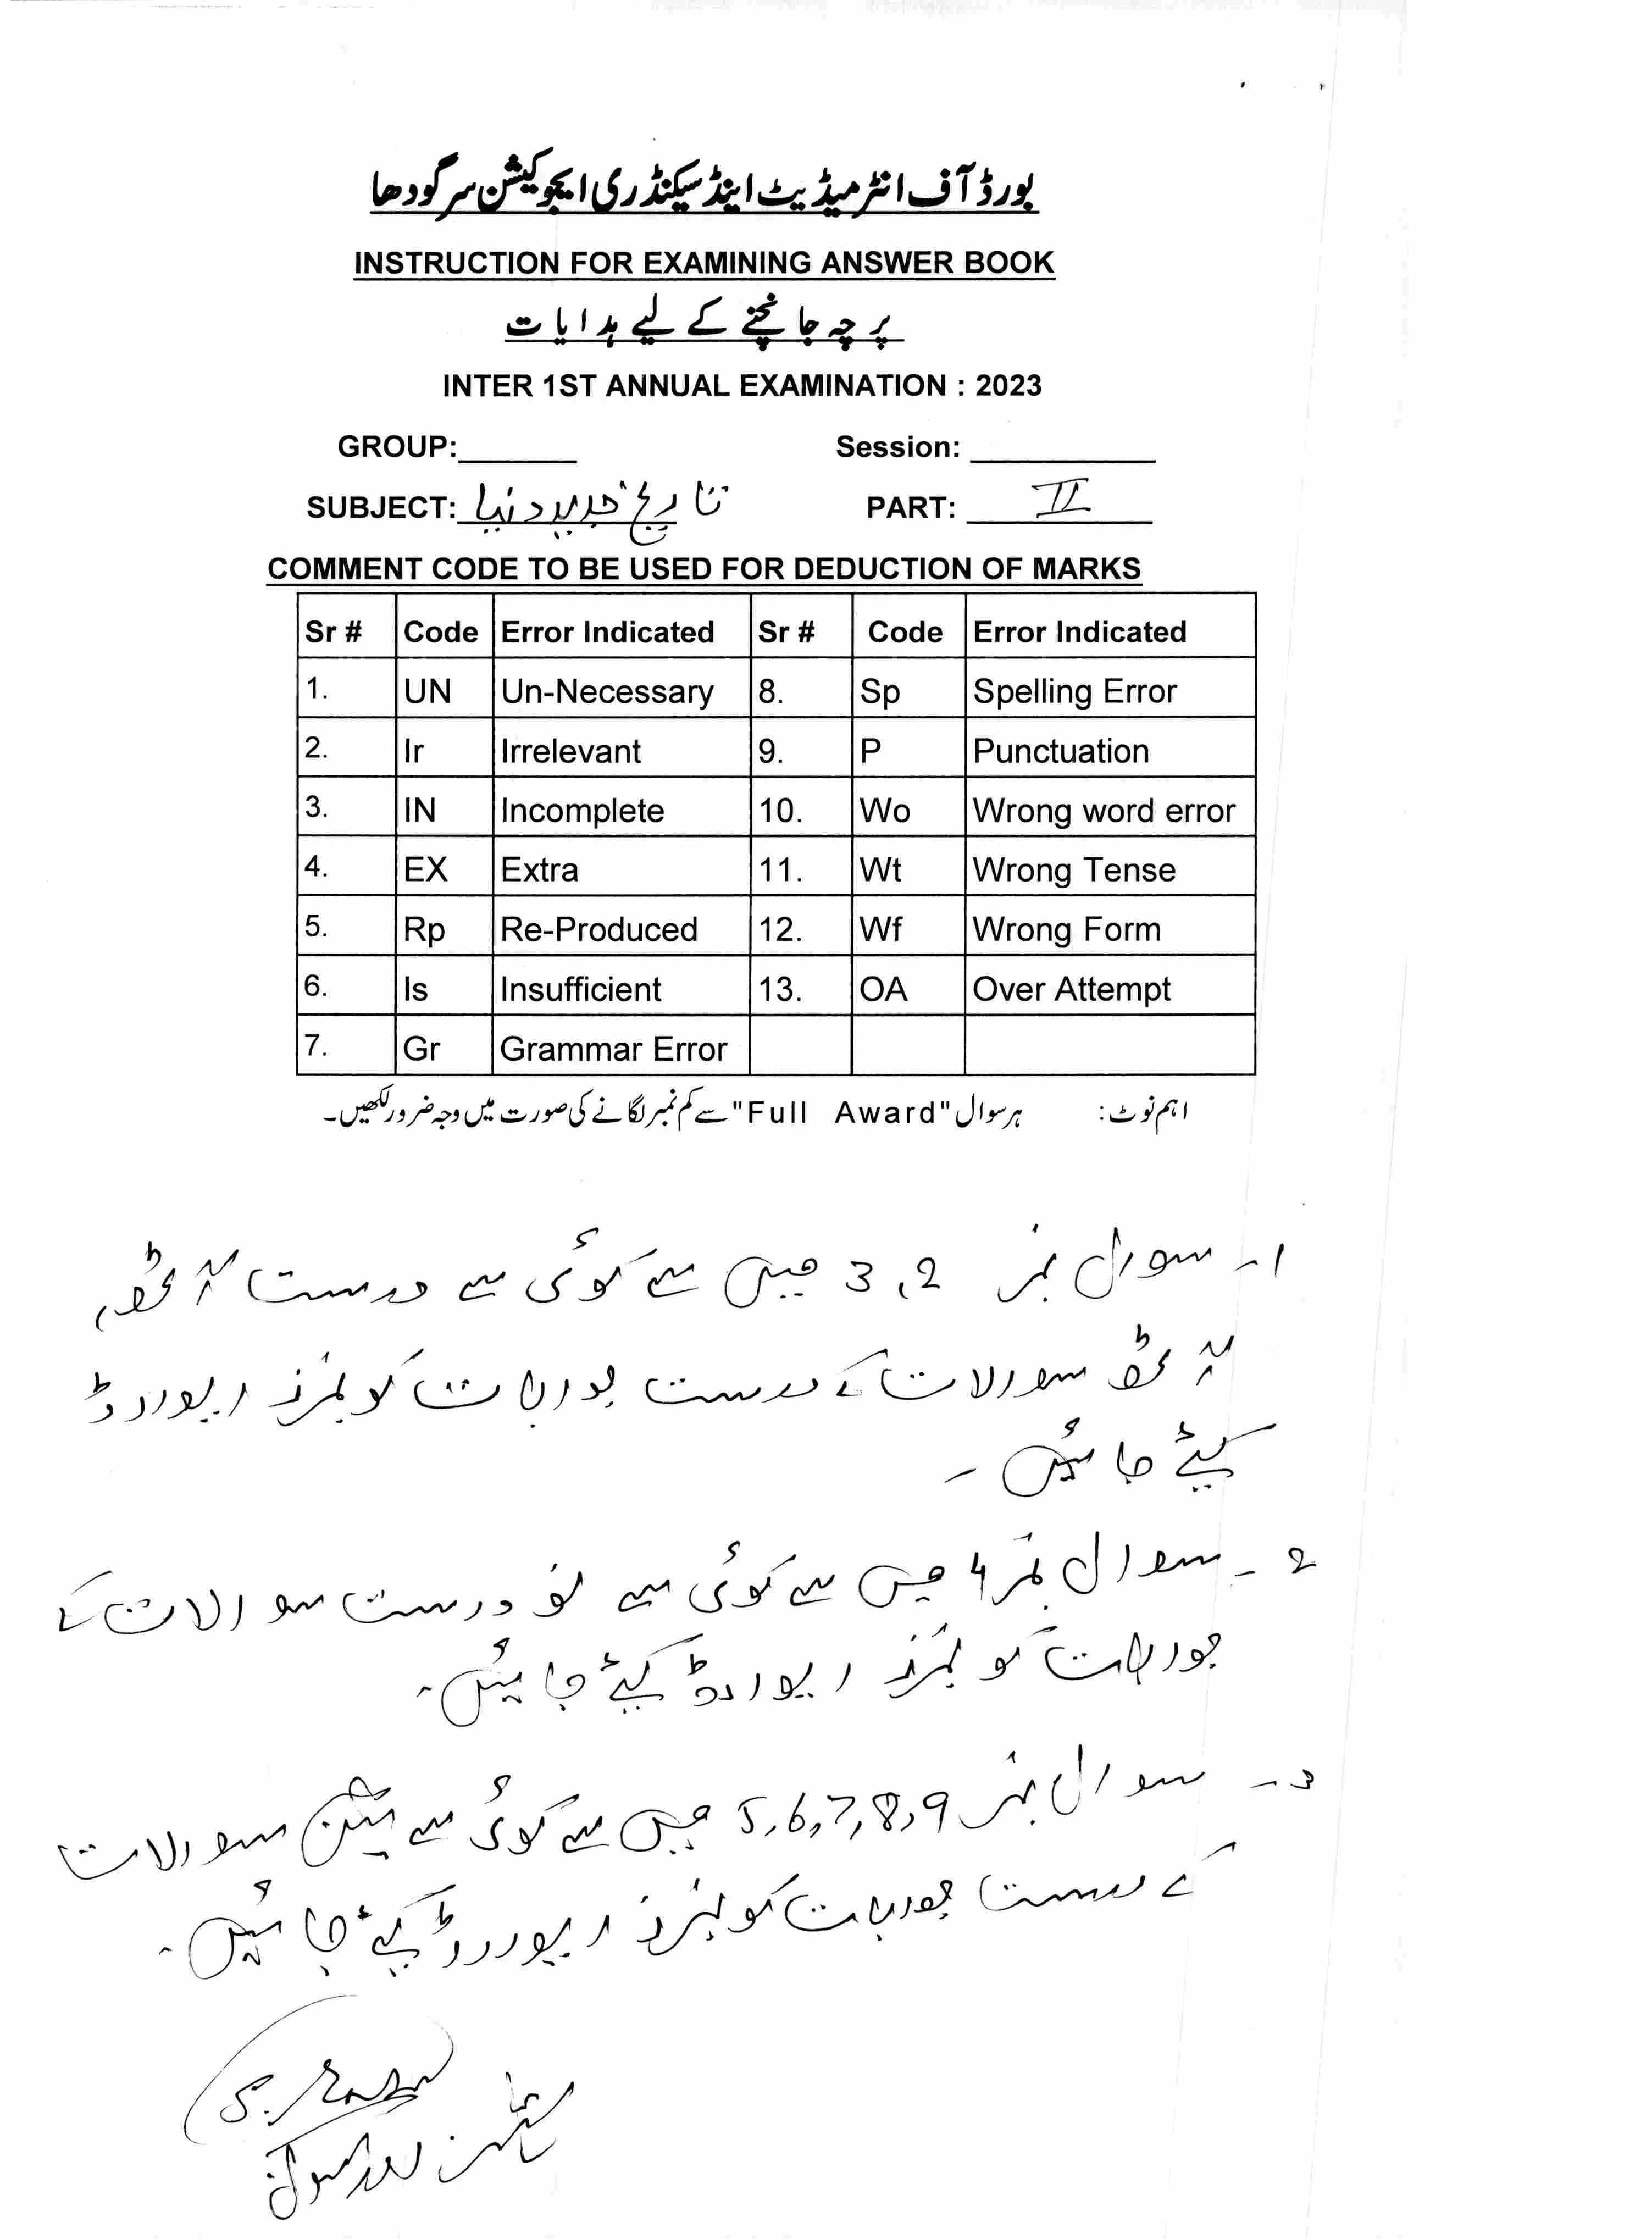 بورڈ آف انٹرمیڈیٹ اینڈ سیکنڈری ایجوکیشن سرگودھا
INSTRUCTION FOR EXAMINING ANSWER BOOK
پرچہ جانچنے کے لیے ہدایات
INTER 1ST ANNUAL EXAMINATION : 2023
GROUP:_______ Session: ___________
SUBJECT: تاریخ جدید دنیا PART: II
COMMENT CODE TO BE USED FOR DEDUCTION OF MARKS
Sr # Code Error Indicated Sr # Code Error Indicated
1. UN Un-Necessary 8. Sp Spelling Error
2. Ir Irrelevant 9. P Punctuation
3. IN Incomplete 10. Wo Wrong word error
4. EX Extra 11. Wt Wrong Tense
5. Rp Re-Produced 12. Wf Wrong Form
6. Is Insufficient 13. OA Over Attempt
7. Gr Grammar Error
اہم نوٹ: ہر سوال "Full Award" سے کم نمبر لگانے کی صورت میں وجہ ضرور لکھیں۔
۱۔ سوال نمبر 2، 3 میں سے کوئی سے درست آٹھ،
آٹھ سوالات کے درست جوابات کو نمبرز ایوارڈ
کیئے جائیں ۔
۲۔ سوال نمبر 4 میں سے کوئی سے نو درست سوالات کے
جوابات کو نمبرز ایوارڈ کیئے جائیں۔
۳۔ سوال نمبر 5,6,7,8,9 میں سے کوئی سے تین سوالات
کے درست جوابات کو نمبرز ایوارڈ کیئے جائیں۔